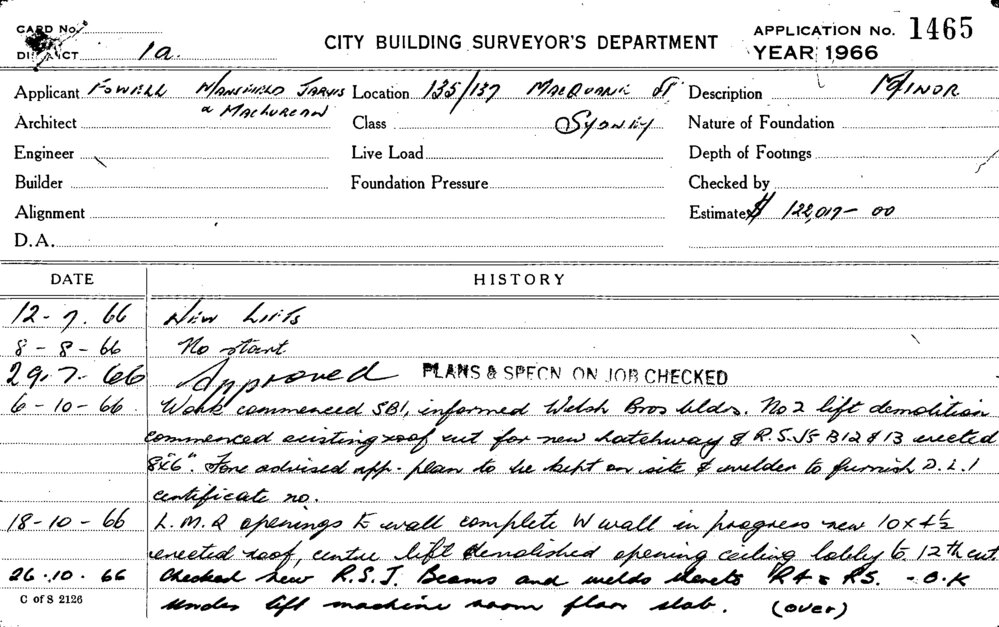 CARD No.
DISTRICT 1a.
CITY BUILDING SURVEYOR'S DEPARTMENT
APPLICATION No. 1465
YEAR 1966
Applicant Fowell Mansfield Jarvis & Maclurcan
Location 135/137 Macquarie St Sydney
Description Minor
Architect
Class
Nature of Foundation
Engineer
Live Load
Depth of Footings
Builder
Foundation Pressure
Checked by
Alignment
Estimate $ 122,017-00
D.A.
DATE HISTORY
12-7.66 New Lifts
8-8-66 No start
29.7.66 Approved PLANS & SPECN ON JOB CHECKED
6-10-66. Work commenced SB1, informed Welsh Bros bldrs. No 2 lift demolition
commenced existing roof cut for new hatchway & R.S.J's B12 & 13 erected
8"x6". Fore advised app. plan to be kept on site & welder to furnish D.L.I
certificate no.
18-10-66 L.M.R openings E wall complete W wall in progress new 10x4½
erected roof, centre lift demolished opening ceiling lobby to 12th cut.
26.10.66 Checked new R.S.J. Beams and welds thereto R4 & R5. - O.K
under lift machine room floor slab. (over)
C of S 2126